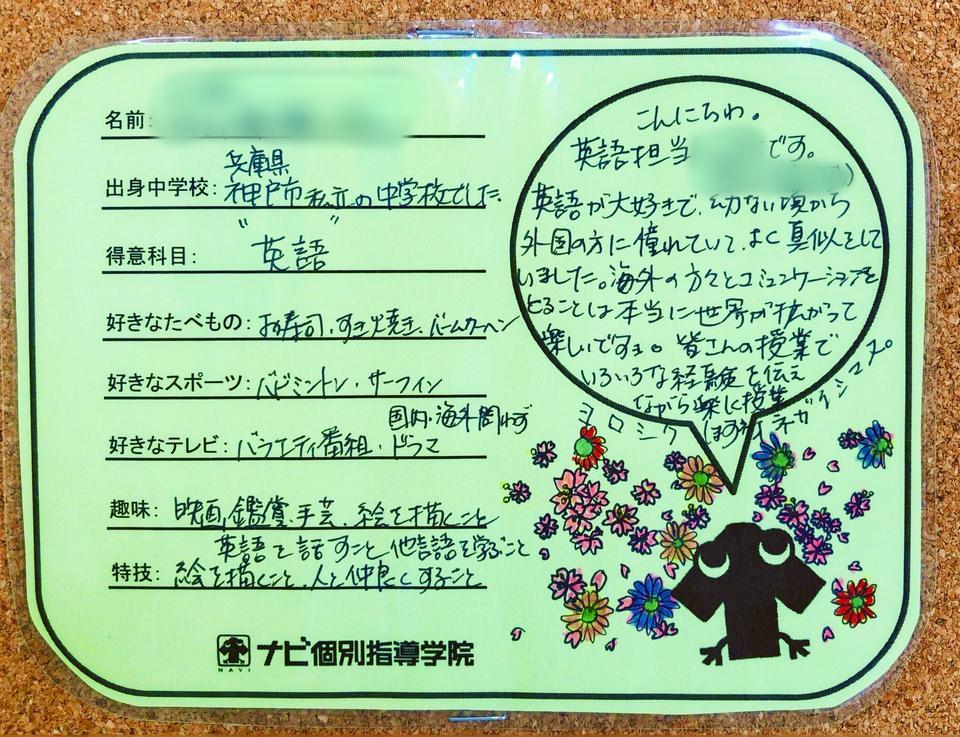 名前:
兵庫県
出身中学校: 神戸市私立の中学校でした
" "
得意科目: 英語
好きなたべもの: お寿司、すき焼き、バームクーヘン
好きなスポーツ: バドミントン・サーフィン
国内・海外問わず
好きなテレビ: バラエティ番組・ドラマ
趣味: 映画鑑賞、手芸、絵を描くこと
英語を話すこと、他言語を学ぶこと
特技: 絵を描くこと、人と仲良くすること
NAVI
ナビ個別指導学院
こんにちわ。
英語担当 です。
)
英語が大好きで、幼ない頃から
外国の方に憧れていて、よく真似をして
いました。海外の方々とコミュニケーションを
とることは本当に世界が拡がって
楽しいですョ。皆さんの授業で
いろいろな経験を伝え
ながら楽しく授業
ヨロシク